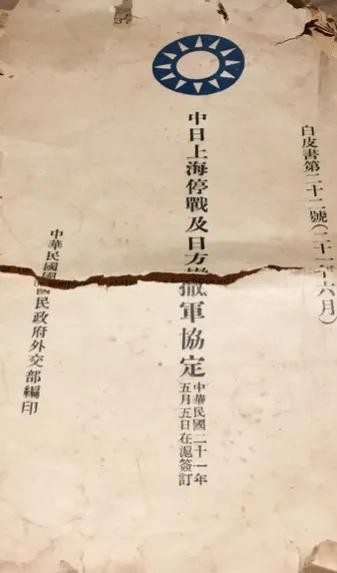 白皮書第二十二號(二十一年六月)
中日上海停戰及日方撤軍協定
中華民國二十一年
五月五日在滬簽訂
中華民國國民政府外交部編印